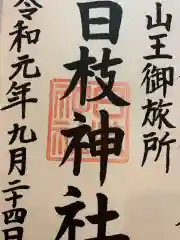 山王御旅所
日枝神社
令和元年九月二十四日